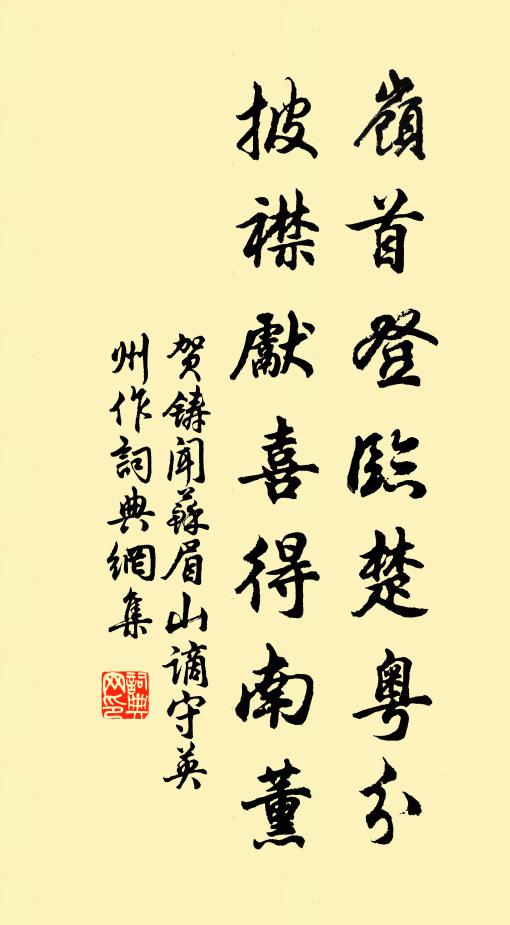 嶺首登臨楚粵分
披襟獻喜得南薰
賀鑄聞蘇眉山謫守英
州作詞典網集
詞典
网印